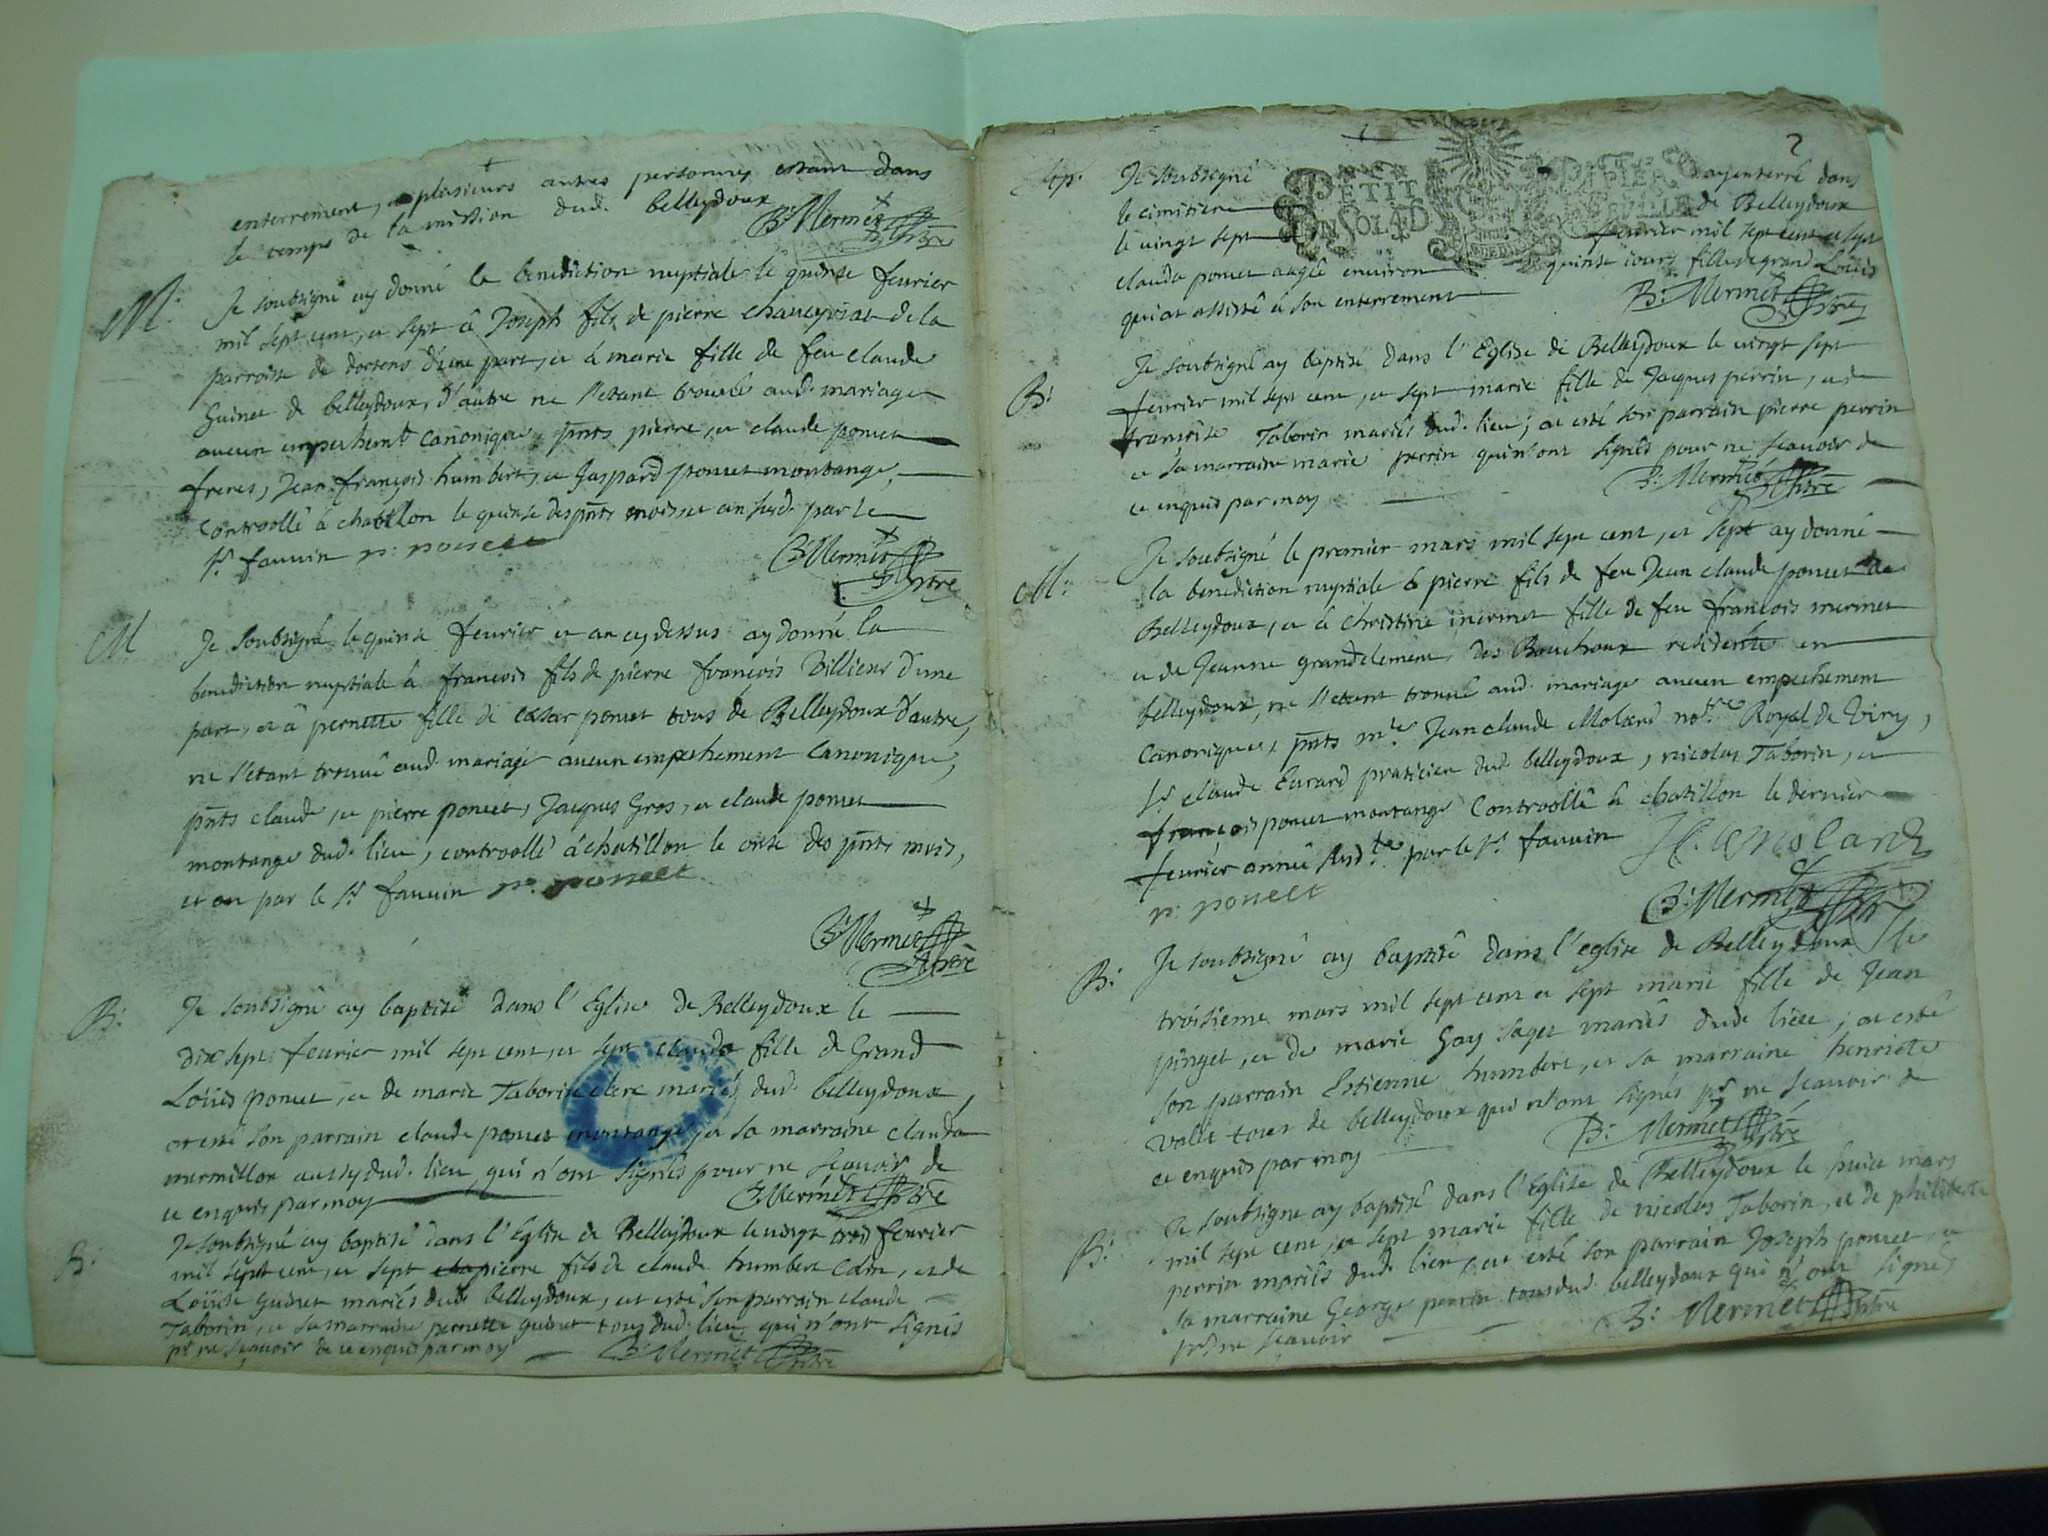 enterrement, et plusieurs autres personnes estant dans
le temps de la mission dud. belleydoux
B: Mermet
ptre
M: Je soubsigné ay donné la benediction nuptiale le quinse feurier
mil sept cent, et sept à Joseph fils de pierre chaneyriat de la
parroisse de dortens d'une part, et à marie fille de feu claude
Guinet de belleydoux, d'autre ne s'etant trouué aud. mariage
aucun empechemt canonique, pnts pierre, et claude poncet
freres, Jean françois humbert, et Gaspard poncet montange,
Controollé à chatillon le quinse des pnts mois et an susd. par le
sr. fauuin p: poncet
B: Mermet
ptre
M Je soubsigné le quinse feurier et an cy dessus ay donné la
benediction nuptiale à françois fils de pierre françois Villiens d'une
part, et à pernette fille de cesar poncet tous de Belleydoux d'autre,
ne s'etant trouué aud. mariage aucun empechement canonique,
pnts claude, et pierre poncet, Jacques Gros, et claude poncet
montange dud. lieu, controollé à chatillon le onse des pnts mois,
et an par le sr. fauuin p: poncet
B: Mermet
ptre
B: Je soubsigné ay baptisé dans l'Eglise de Belleydoux le
dix sept feurier mil sept cent, et sept clauda fille de Grand
Loüis poncet, et de marie Taborin clerc mariés dud. belleydoux,
at esté son parrain claude poncet montange, et sa marraine clauda
mermillon aussy dud. lieu, qui n'ont signés pour ne sçauoir de
ce enquis par moy B: Mermet ptre
B: Je soubsigné ay baptisé dans l'Eglise de Belleydoux le vingt trois feurier
mil sept cent, et sept pierre fils de claude humbert Colin, et de
Loüise Guinet mariés dud. belleydoux, at esté son parrain claude
Taborin, et sa marraine pernette guinet tous dud. lieu qui n'ont signés
pr. ne sçauoir de ce enquis par moy B: Mermet ptre
2
PETIT PAPIER
UN SOL 4 D
Je soubsigné ay enterré dans
le cimitiere de Belleydoux
le vingt sept feurier mil sept cent et sept
clauda poncet aagée enuiron quinse iours fille de grand Loüis
qui at assisté à son enterrement B: Mermet
ptre
B: Je soubsigné ay baptisé dans l'Eglise de Belleydoux le vingt sept
feurier mil sept cent, et sept marie fille de Jacques perrin, et de
françoise Taborin mariés dud. lieu; at esté son parrain pierre perrin
et sa marraine marie perrin qui n'ont signés pour ne sçauoir de
ce enquis par moy B: Mermet ptre
M: Je soubsigné le premier mars mil sept cent, et sept ay donné
la benediction nuptiale à pierre fils de feu Jean claude poncet de
Belleydoux, et à christine mermet fille de feu françois mermet
et de Jeanne grandclement des Bouchoux residente en
belleydoux, ne s'etant trouué aud. mariage aucun empechement
canonique, pnts me Jean claude Moland notre Royal de Viry,
sr claude Eurard praticien dud. belleydoux, nicolas Taborin, et
françois poncet montange Controollé à chatillon le dernier
feurier année susd.te par le sr. fauuin
p: poncet
B: Mermet ptre
B: Je soubsigné ay baptisé dans l'eglise de Belleydoux le
troisieme mars mil sept cent et sept marie fille de Jean
pinget, et de marie Gay saget mariés dud. lieu; at esté
son parrain Estienne humbert, et sa marraine henriete
Vallet tous de belleydoux qui n'ont signés pr ne sçauoir de
ce enquis par moy B: Mermet ptre
B: Je soubsigné ay baptisé dans l'Eglise de Belleydoux le huict mars
mil sept cent, et sept marie fille de nicolas Taborin, et de philiberte
perrin mariés dud. lieu, at esté son parrain Joseph poncet, et
sa marraine George perrin tous dud. belleydoux qui n'ont signés
pr. ne sçauoir B: Mermet ptre